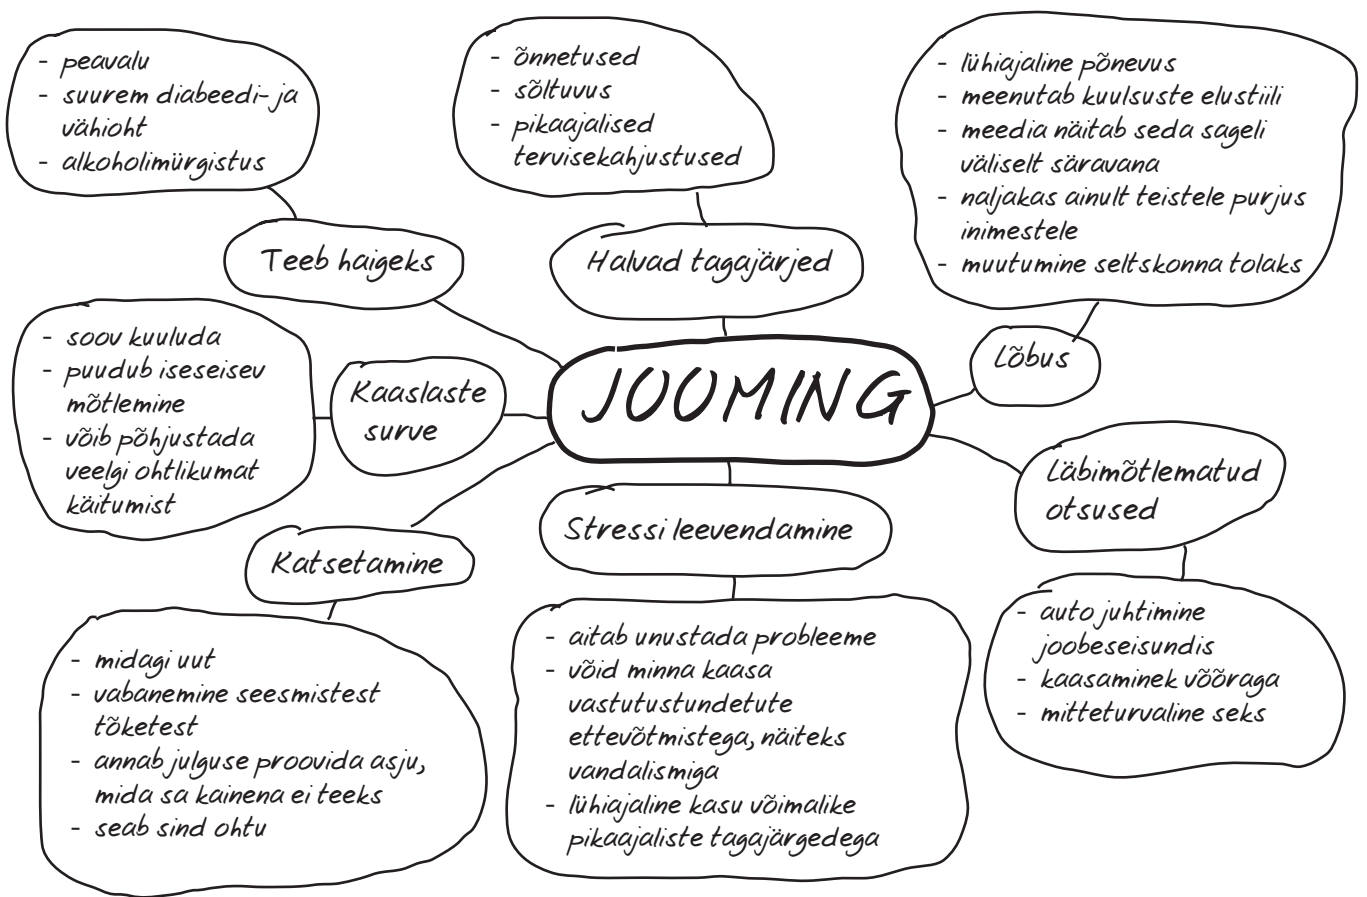 - peavalu
- suurem diabeedi- ja
vähioht
- alkoholimürgistus
Teeb haigeks
- õnnetused
- sõltuvus
- pikaajalised
tervisekahjustused
Halvad tagajärjed
- lühiajaline põnevus
- meenutab kuulsuste elustiili
- meedia näitab seda sageli
väliselt säravana
- naljakas ainult teistele purjus
inimestele
- muutumine seltskonna tolaks
Lõbus
- soov kuuluda
- puudub iseseisev
mõtlemine
- võib põhjustada
veelgi ohtlikumat
käitumist
Kaaslaste
surve
JOOMING
Läbimõtlematud
otsused
- auto juhtimine
joobeseisundis
- kaasaminek võõraga
- mitteturvaline seks
Katsetamine
- midagi uut
- vabanemine seesmistest
tõketest
- annab julguse proovida asju,
mida sa kainena ei teeks
- seab sind ohtu
Stressi leevendamine
- aitab unustada probleeme
- võid minna kaasa
vastutustundetute
ettevõtmistega, näiteks
vandalismiga
- lühiajaline kasu võimalike
pikaajaliste tagajärgedega